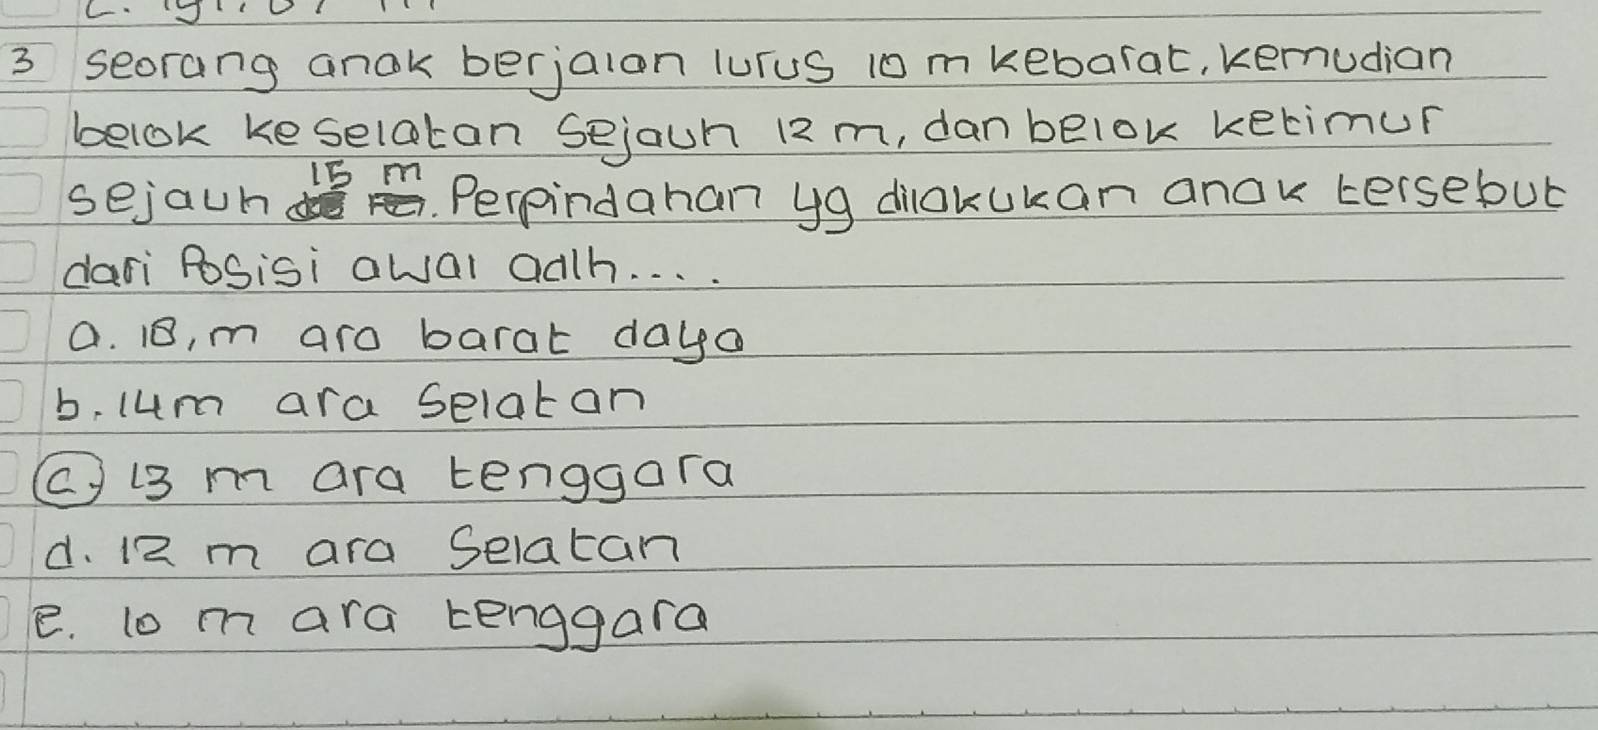 3 seorang anak berjalan lurus 10 m kebarat, kemudian
belok ke selatan sejauh 12 m, dan belok ketimur
sejauh 15 m. Perpindahan yg dilakukan anak tersebut
dari Posisi awal adlh....
a. 18, m ara barat daya
b. 14m ara selatan
c. 13 m ara tenggara
d. 12 m ara Selatan
e. 10 m ara tenggara